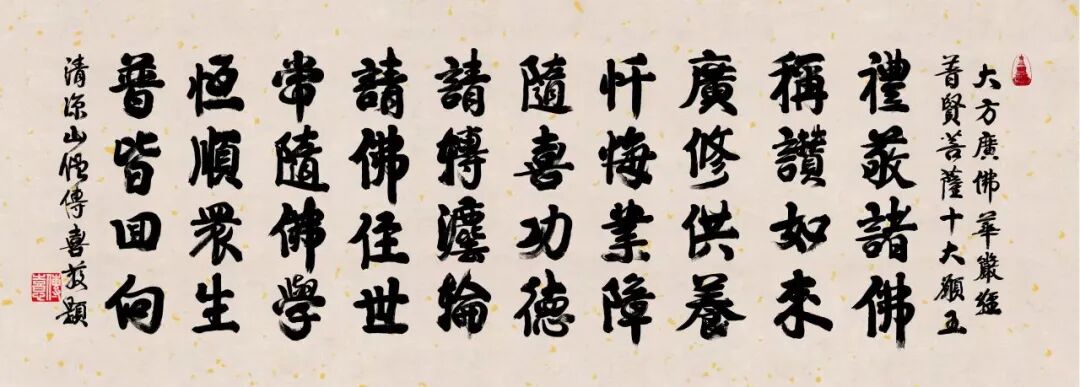 大方廣佛華嚴經
普賢菩薩十大願王
禮敬諸佛
稱讚如來
廣修供養
忏悔業障
隨喜功德
請轉灋輪
請佛住世
常隨佛學
恒順眾生
普皆回向
清凉山僧傳喜敬題
傳喜